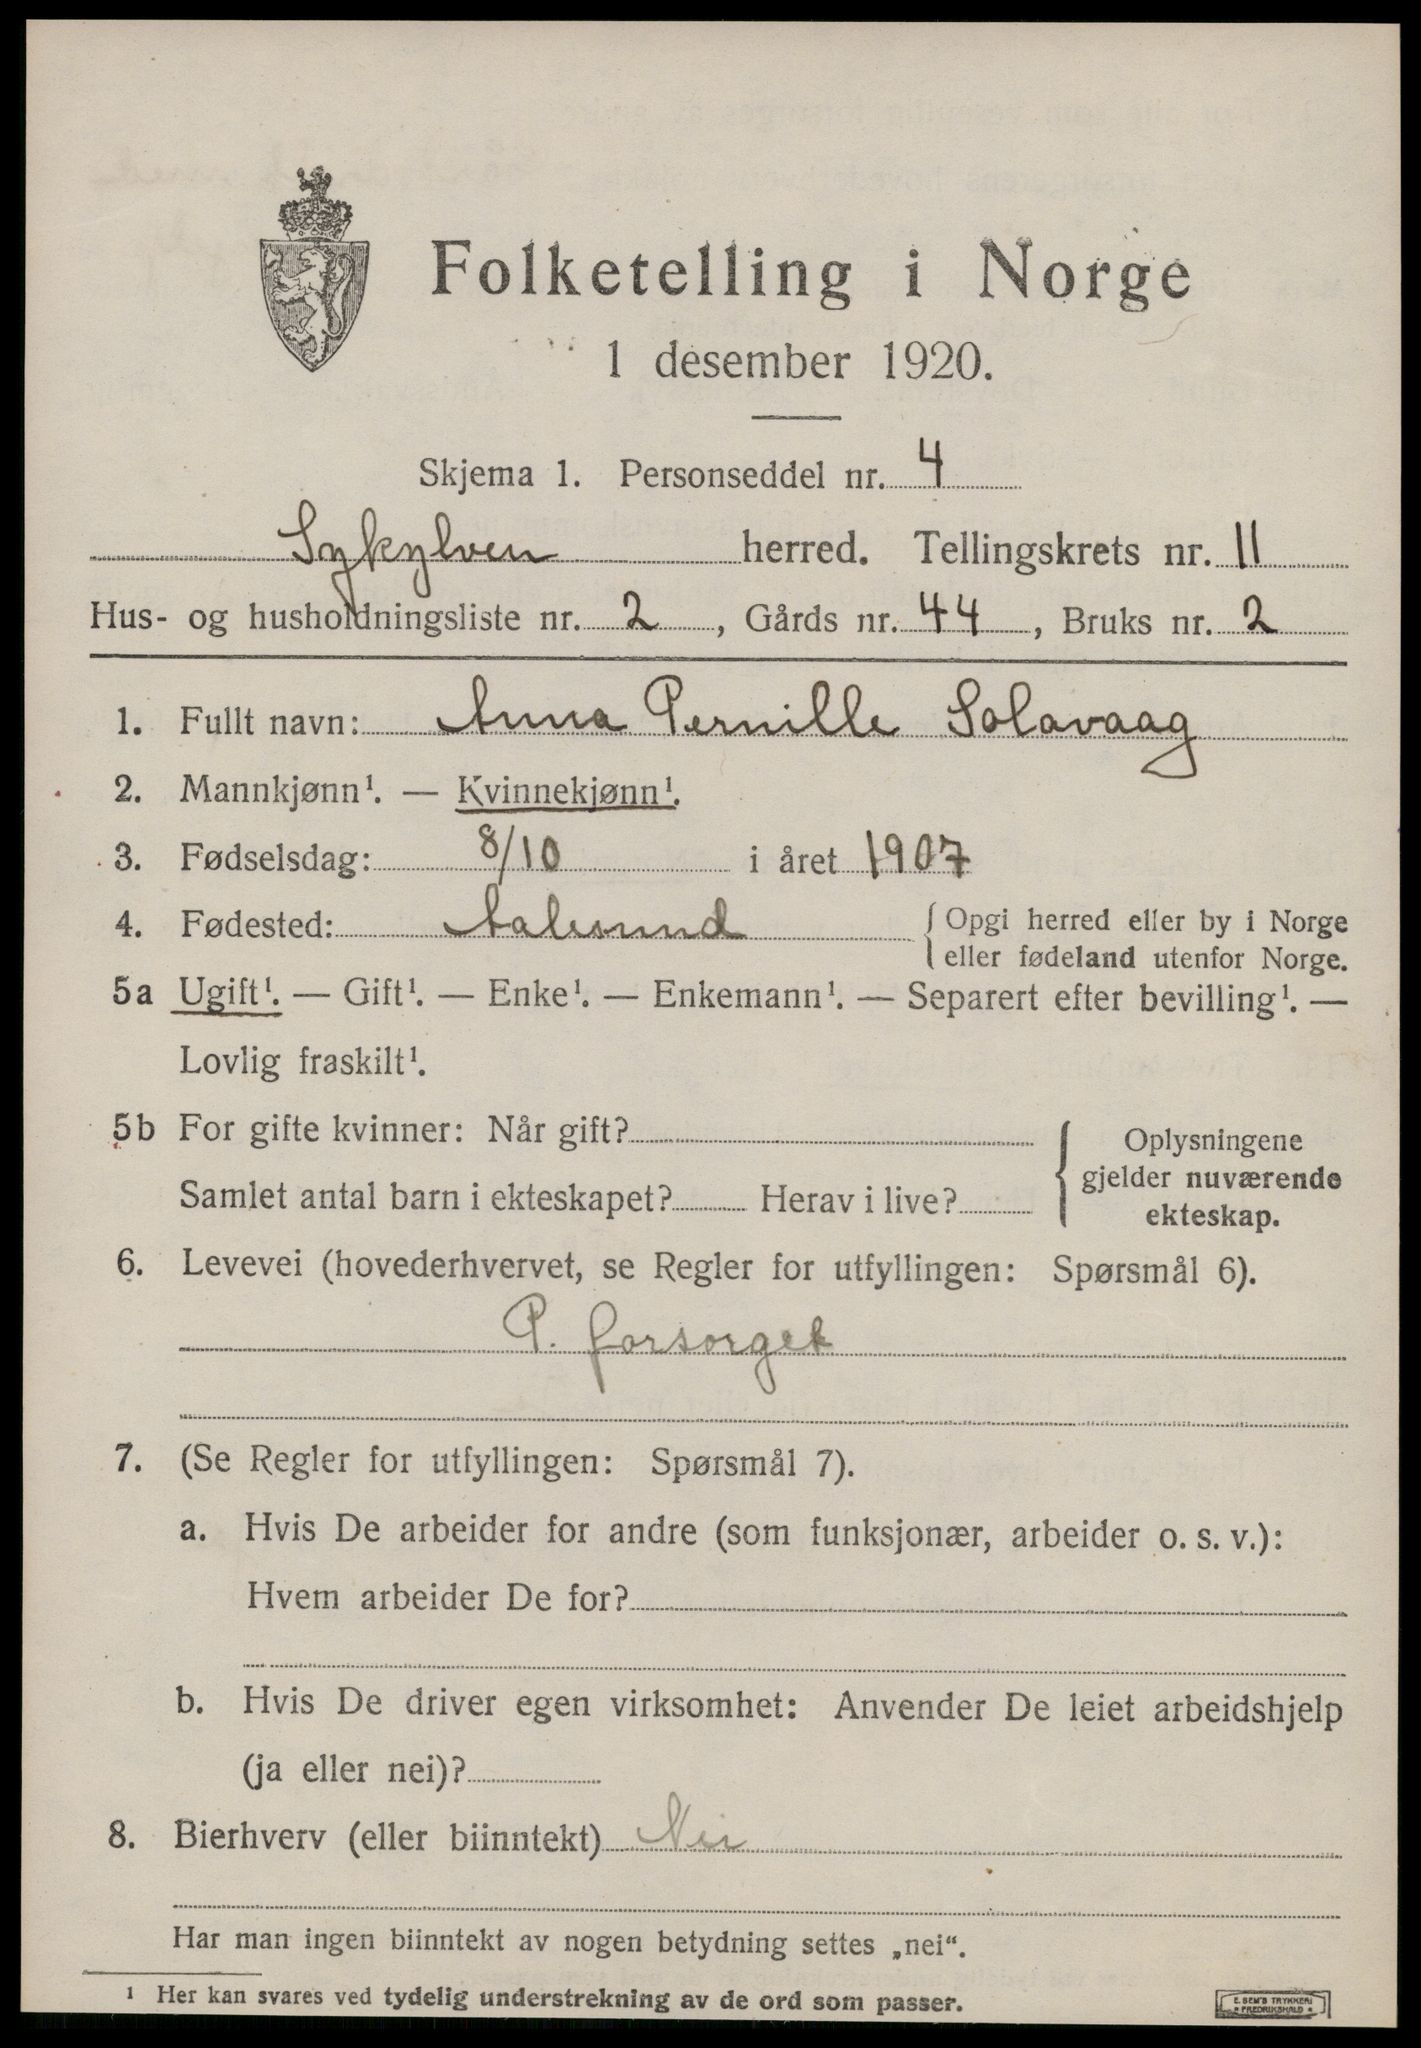 Folketelling i Norge
1 desember 1920.
Skjema 1. Personseddel nr. 4
Sykylven herred. Tellingskrets nr. 11
Hus- og husholdningsliste nr. 2, Gårds nr. 44, Bruks nr. 2
1. Fullt navn: Anna Pernille Solavaag
2. Mannkjønn¹. — Kvinnekjønn¹.
3. Fødselsdag: 8/10 i året 1907
4. Fødested: Aalesund { Opgi herred eller by i Norge
eller fødeland utenfor Norge.
5a Ugift¹. — Gift¹. — Enke¹. — Enkemann¹. — Separert efter bevilling¹. —
Lovlig fraskilt¹.
5b For gifte kvinner: Når gift?
Samlet antal barn i ekteskapet? Herav i live?
Oplysningene
gjelder nuværende
ekteskap.
6. Levevei (hovederhvervet, se Regler for utfyllingen: Spørsmål 6).
P. forsorget
7. (Se Regler for utfyllingen: Spørsmål 7).
a. Hvis De arbeider for andre (som funksjonær, arbeider o. s. v.):
Hvem arbeider De for?
b. Hvis De driver egen virksomhet: Anvender De leiet arbeidshjelp
(ja eller nei)?
8. Bierhverv (eller biinntekt) Nei
Har man ingen biinntekt av nogen betydning settes „nei“.
¹ Her kan svares ved tydelig understrekning av de ord som passer.
E. SEM'S TRYKKERI
FREDRIKSHALD